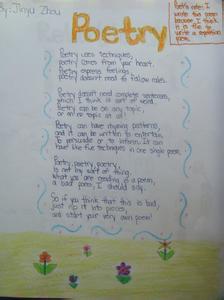 By: Jinyu Zhou
Poetry
Poet's note: I
write this poem
because I think
it is fun to
write a
poem.
Poetry uses techniques,
poetry comes from your heart.
Poetry express feelings
poetry doesn't need to follow rules.
Poetry doesn't need complete sentences,
which I think is sort of weird.
Poetry can be on any topic,
or on no topic at all!
Poetry can have rhyming patterns,
and it can be written to entertain,
To persuade or to inform. It can
have like five techniques in one single poem.
Poetry, poetry, poetry,
is not my sort of thing.
What you are reading is a poem,
a bad poem, I should say.
So if you think that this is bad,
just rip it into pieces,
and start your very own poem!